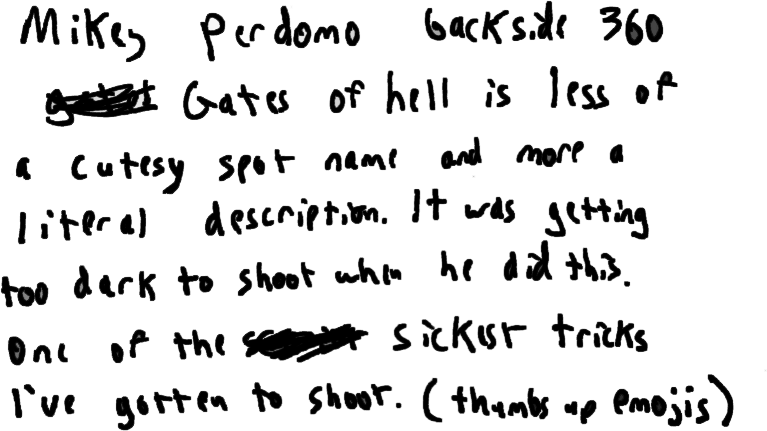 Mikey Perdomo backside 360
Gates of hell is less of
a cutesy spot name and more a
literal description. It was getting
too dark to shoot when he did this.
One of the sickest tricks
I've gotten to shoot. (thumbs up emojis)